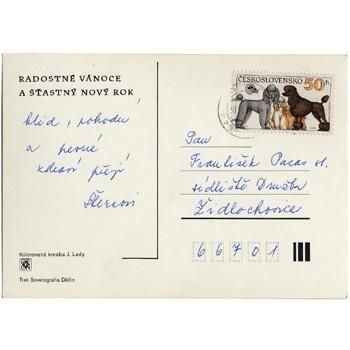 RADOSTNÉ VÁNOCE
A ŠŤASTNÝ NOVÝ ROK
klid, pohodu
a pevné
zdraví přejí
ČESKOSLOVENSKO 50h
Pan
František Pacas st.
sídliště Družba
Židlochovice
66701
Kolorovaná kresba J. Lady
Tisk Severografia Děčín